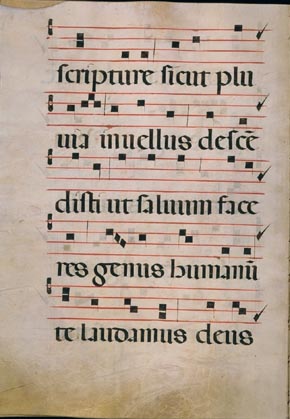 scripture sicut plu
uia inuellus descē
disti ut saluum face
res genus humanū
te laudamus deus